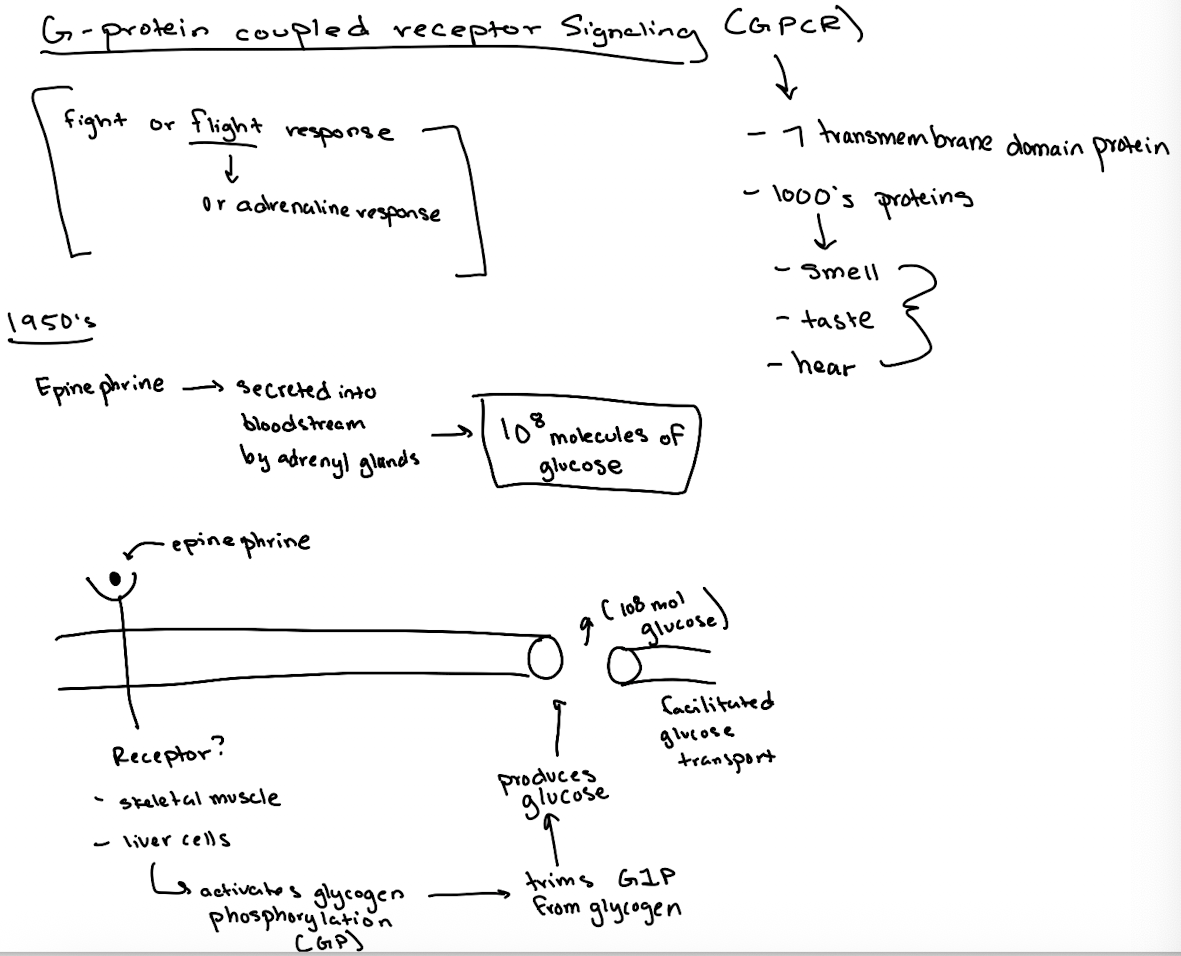 G-protein coupled receptor Signaling (GPCR)
fight or flight response
or adrenaline response
- 7 transmembrane domain protein
- 1000's proteins
- smell
- taste
- hear
1950's
Epinephrine → secreted into
bloodstream
by adrenyl glands
→ 10⁸ molecules of
glucose
epinephrine
(108 mol
glucose)
facilitated
glucose
transport
Receptor?
- skeletal muscle
- liver cells
activates glycogen
phosphorylation
(GP)
→ trims G1P
from glycogen
produces
glucose